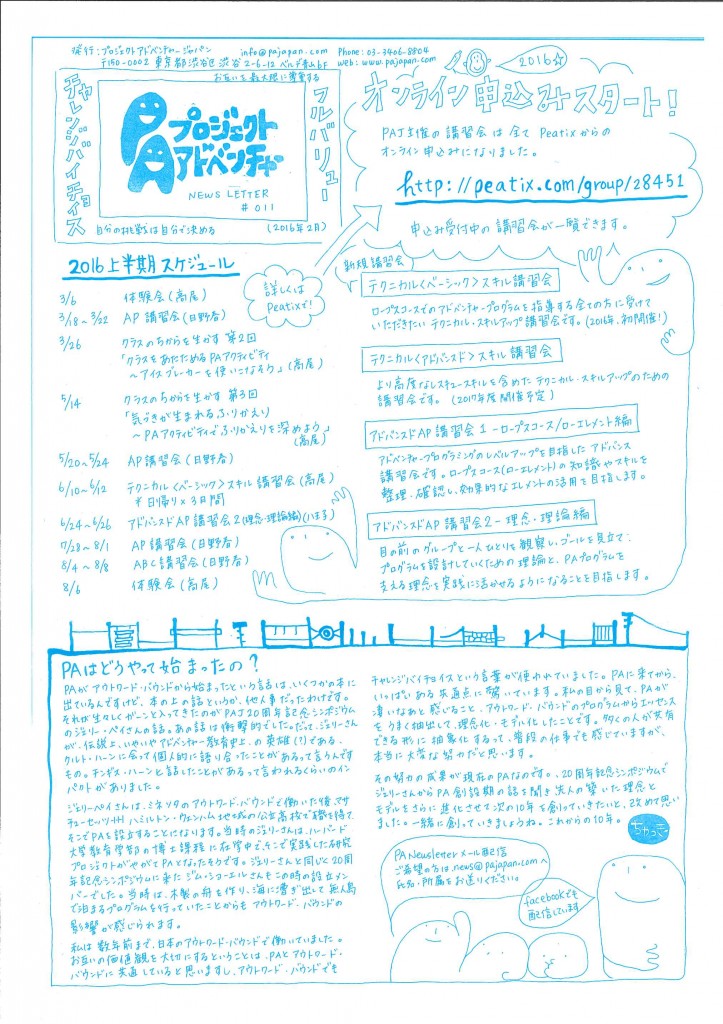 発行:プロジェクトアドベンチャージャパン info@pajapan.com Phone:03-3406-8804
〒150-0002 東京都渋谷区渋谷2-6-12 ベルデ青山6F web:www.pajapan.com
お互いを最大限に尊重する
チャレンジバイチョイス
フルバリュー
PA
プロジェクト
アドベンチャー
NEWS LETTER
#011
自分の挑戦は自分で決める (2016年2月)
2016☆
オンライン申込みスタート!
PAJ主催の講習会は全てPeatixからの
オンライン申込みになりました。
http://peatix.com/group/28451
申込み受付中の講習会が一覧できます。
2016上半期スケジュール
詳しくは
Peatixで!
3/6 体験会(高尾)
3/18~3/22 AP講習会(日野春)
3/26 クラスのちからを生かす 第2回
「クラスをあたためるPAアクティビティ
~アイスブレーカーを使いこなそう」(高尾)
5/14 クラスのちからを生かす 第3回
「気づきが生まれるふりかえり
~PAアクティビティでふりかえりを深めよう」
(高尾)
5/20~5/24 AP講習会(日野春)
6/10~6/12 テクニカル<ベーシック>スキル講習会(高尾)
*日帰り×3日間
6/24~6/26 アドバンスドAP講習会2(理念・理論編)(八王子)
7/28~8/1 AP講習会(日野春)
8/4~8/8 ABC講習会(日野春)
8/6 体験会(高尾)
新規講習会
テクニカル<ベーシック>スキル講習会
ロープスコースでのアドベンチャープログラムを指導する全ての方に受けて
いただきたいテクニカル・スキルアップ講習会です。(2016年、初開催!)
テクニカル<アドバンスド>スキル講習会
より高度なレスキュースキルを含めたテクニカル・スキルアップのための
講習会です。(2017年度開催予定)
アドバンスドAP講習会1-ロープスコース/ローエレメント編
アドベンチャープログラミングのレベルアップを目指したアドバンス
講習会です。ロープスコース(ローエレメント)の知識やスキルを
整理・確認し、効果的なエレメントの活用を目指します。
アドバンスドAP講習会2-理念・理論編
目の前のグループと一人ひとりを観察し、ゴールを見立て、
プログラムを設計していくための理論と、PAプログラムを
支える理念を実践に活かせるようになることを目指します。
PAはどうやって始まったの?
PAがアウトワード・バウンドから始まったという話は、いくつかの本に
出ているんですけど、本の上の話というか、他人事だったわけです。
それが生々しくガーンと入ってきたのがPAJ20周年記念シンポジウム
のジェリー・ペイさんの話。あの話は衝撃的でした。だって、ジェリーさん
が、伝説上、いやいやアドベンチャー教育史上、の英雄(?)である、
クルト・ハーンに会って個人的に語り合ったことがあるって言うんです
もの。チンギス・ハーンと話したことがあるって言われるくらいのイン
パクトがありました。
ジェリーペイさんは、ミネソタのアウトワード・バウンドで働いた後、マサ
チューセッツ州ハミルトン・ウェンハム地域の公立高校で職を得て、
そこでPAを設立することになります。当時のジェリーさんは、ハーバード
大学教育学部の博士課程に在学中で、そこで実践した研究
プロジェクトがやがてPAとなったそうです。ジェリーさんと同じく20周
年記念シンポジウムに来たジム・ショーエルさんもこの時の設立メン
バーでした。当時は、木製の舟を作り、海に漕ぎ出して無人島
で泊まるプログラムを行っていたことからもアウトワード・バウンドの
影響が感じられます。
私は数年前まで、日本のアウトワード・バウンドで働いていました。
お互いの価値観を大切にするということは、PAとアウトワード・
バウンドに共通していると思いますし、アウトワード・バウンドでも
チャレンジバイチョイスという言葉が使われていました。PAに来てから、
いっぱいある共通点に驚いています。私の目から見て、PAが
凄いなあと感じること、アウトワード・バウンドのプログラムからエッセンス
をうまく抽出して、理念化・モデル化したことです。多くの人が実行
できる形に抽象化するって、普段の仕事でも感じていますが、
本当に大変な努力だと思います。
その努力の成果が現在のPAなのです。20周年記念シンポジウムで
ジェリーさんからPA創設期の話を聞き先人の築いた理念と
モデルをさらに進化させて次の10年を創っていきたいと、改めて思い
ました。一緒に創っていきましょうね。これからの10年。
ちゃっき
PA Newsletterメール配信
ご希望の方は、news@pajapan.comへ
氏名・所属をお送りください。
facebookでも
配信しています